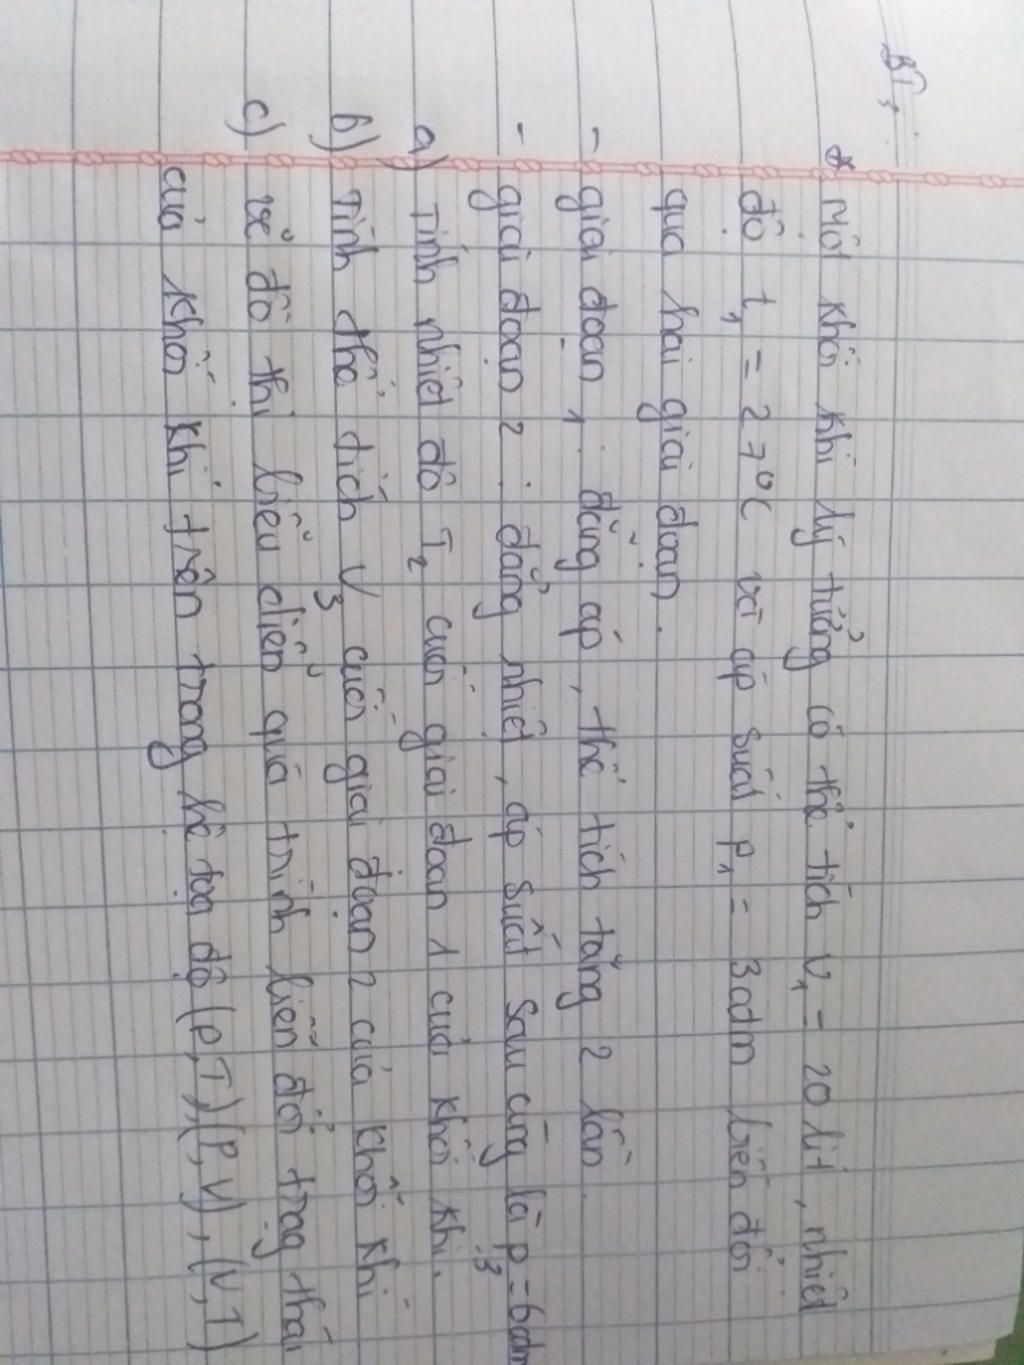 BT,
* Một khối khí lý tưởng có thể tích V₁ = 20 lít, nhiệt
độ t₁ = 27°C và áp suất p₁ = 3adm biến đổi
qua hai giai đoạn.
- giai đoạn 1: đẳng áp, thể tích tăng 2 lần.
- giai đoạn 2: đẳng nhiệt, áp suất sau cùng là p₃ = 6adm
a) Tính nhiệt độ T₂ cuối giai đoạn 1 của khối khí.
b) Tính thể tích V₃ cuối giai đoạn 2 của khối khí
c) vẽ đồ thị biểu diễn quá trình biến đổi trạg thái
của khối khí trên trong hệ tọa độ (P,T), (P,V), (V,T)